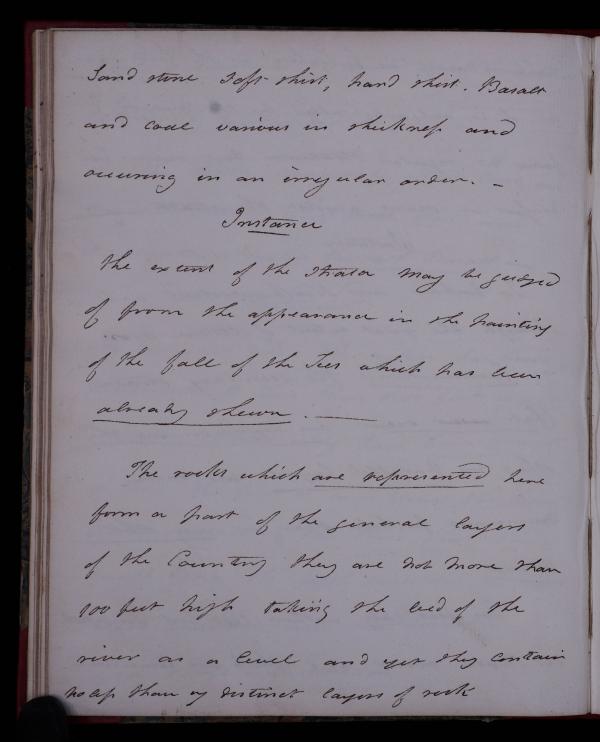 Sand stone soft shist, hard shist. Basalt
and coal various in thickness and
occurring in an irregular order. –
Instance
The extent of the strata may be judged
of from the appearance in the painting
of the fall of the Tees which has been
already shewn. —
The rocks which are represented here
form a part of the general layers
of the Country they are not more than
100 feet high taking the bed of the
river as a level and yet they contain
no less than distinct layers of rock